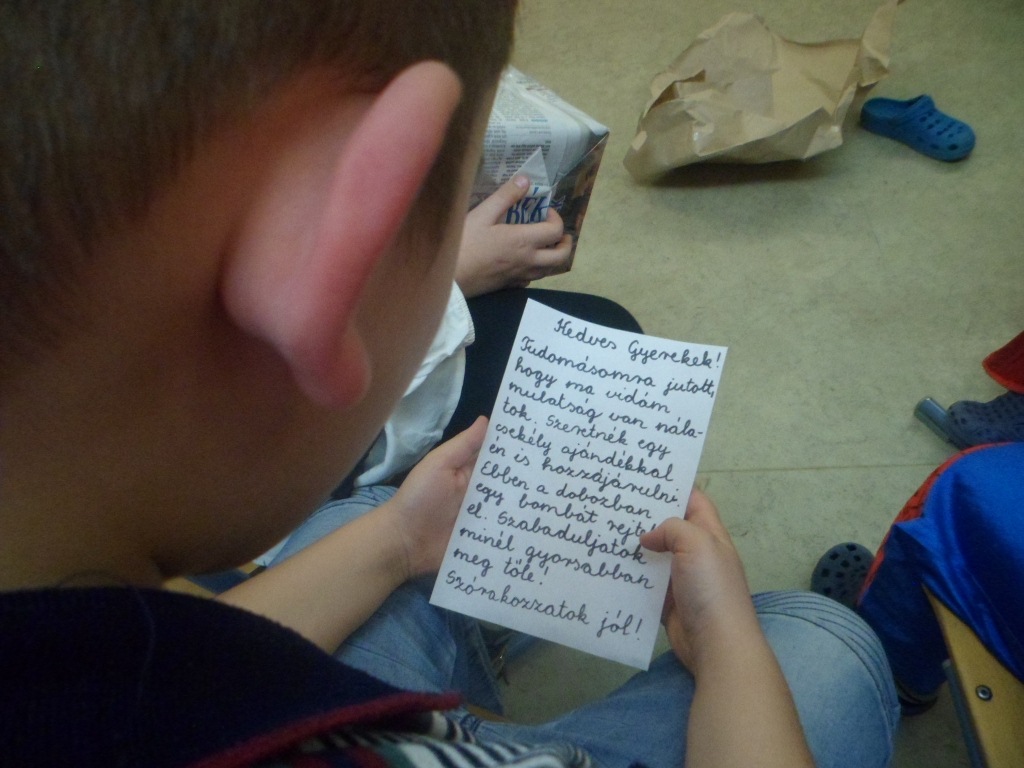 Kedves Gyerekek!
Tudomásomra jutott,
hogy ma vidám
mulatság van nála-
tok. Szeretnék egy
csekély ajándékkal
én is hozzájárulni
Ebben a dobozban
egy bombát
el. Szabaduljatok
minél gyorsabban
meg tőle!
Szórakozzatok jól!
BÉK